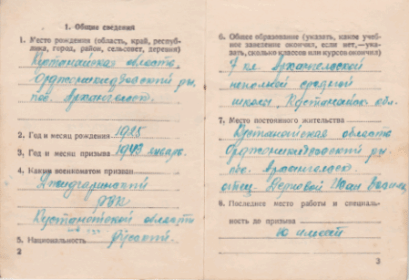 1. Общие сведения
1. Место рождения (область, край, респуб-
лика, город, район, сельсовет, деревня)
Кустанайская область
Орджоникидзевский р-н,
пос. Архангельск.
2. Год и месяц рождения 1925
3. Год и месяц призыва 1943 январь
4. Каким военкоматом призван
РВК
Кустанайской области
5. Национальность
2
6. Общее образование (указать, какое учеб-
ное заведение окончил, если нет,—ука-
зать, сколько классов или курсов окончил)
7 кл. Архангельской
неполной средней
школы, Кустанайск. обл.
7. Место постоянного жительства
Кустанайская область
Орджоникидзевский р-н
пос. Архангельск
отец
8. Последнее место работы и специаль-
ность до призыва
3